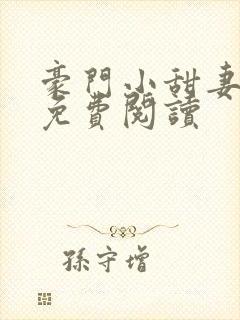 豪門小甜妻
免費閱讀
孫守增